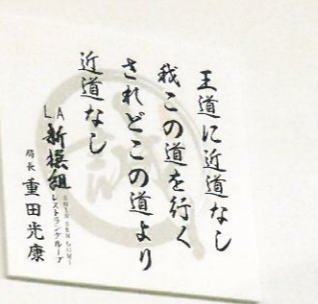 王道に近道なし
我この道を行く
されどこの道より
近道なし
LA新撰組
SHIN SEN GUMI
レストラングループ
局長 重田光康
誠